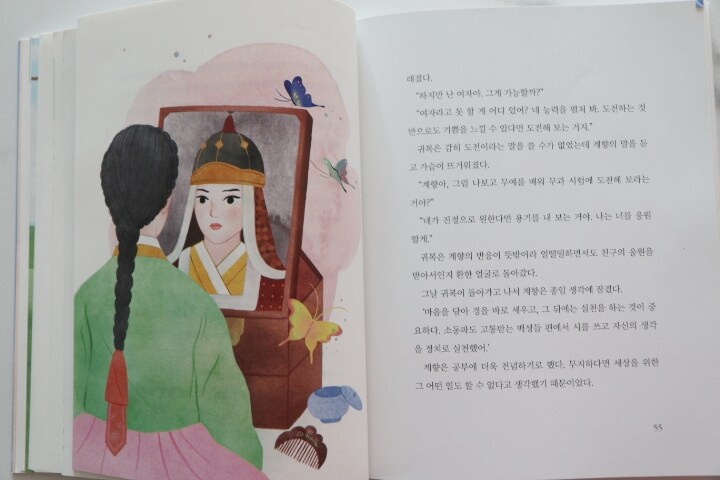 래졌다.
“하지만 난 여자야. 그게 가능할까?”
“여자라고 못 할 게 어디 있어? 네 능력을 펼쳐 봐. 도전하는 것
만으로도 기쁨을 느낄 수 있다면 도전해 보는 거지.”
귀복은 감히 도전이라는 말을 쓸 수가 없었는데 계향의 말을 듣
고 가슴이 뜨거워졌다.
“계향아, 그럼 나보고 무예를 배워 무과 시험에 도전해 보라는
거야?”
“네가 진정으로 원한다면 용기를 내 보는 거야. 나는 너를 응원
할게.”
귀복은 계향의 반응이 뜻밖이라 얼떨떨하면서도 친구의 응원을
받아서인지 환한 얼굴로 돌아갔다.
그날 귀복이 돌아가고 나서 계향은 종일 생각에 잠겼다.
‘마음을 닦아 경을 바로 세우고, 그 뒤에는 실천을 하는 것이 중
요하다. 소동파도 고통받는 백성들 편에서 시를 쓰고 자신의 생각
을 정치로 실천했어.’
계향은 공부에 더욱 전념하기로 했다. 무지하다면 세상을 위한
그 어떤 일도 할 수 없다고 생각했기 때문이었다.
55